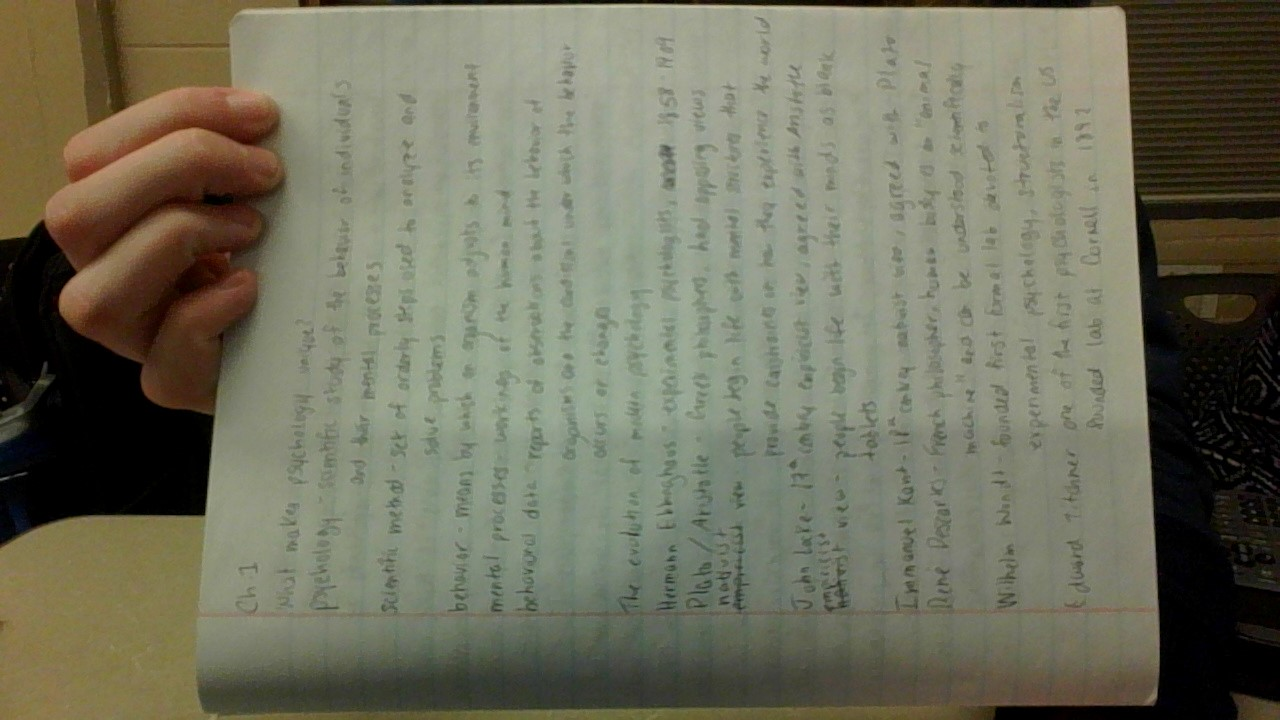 Ch 1
What makes psychology unique?
psychology - scientific study of the behavior of individuals
and their mental processes
scientific method - set of orderly steps used to analyze and
solve problems
behavior - means by which an organism adjusts to its environment
mental processes - workings of the human mind
behavioral data - reports of observations about the behavior of
organisms and the conditions under which the behavior
occurs or changes
The evolution of modern psychology
Hermann Ebbinghaus - experimental psychologists, 1858 - 1909
Plato / Aristotle - Greek philosophers, had opposing views
nativist
empiricist view people begin life with mental structures that
provide constraints on how they experience the world
John Locke - 17th century empiricist view, agreed with Aristotle
empiricist
nativist view - people begin life with their minds as blank
tablets
Immanuel Kant - 18th century nativist view, agreed with Plato
Rene Descartes - French philosopher, human body is an "animal
machine" and can be understood scientifically
Wilhelm Wundt - founded first formal lab devoted to
experimental psychology, structuralism
Edward Titchner one of the first psychologists in the US
founded lab at Cornell in 1892